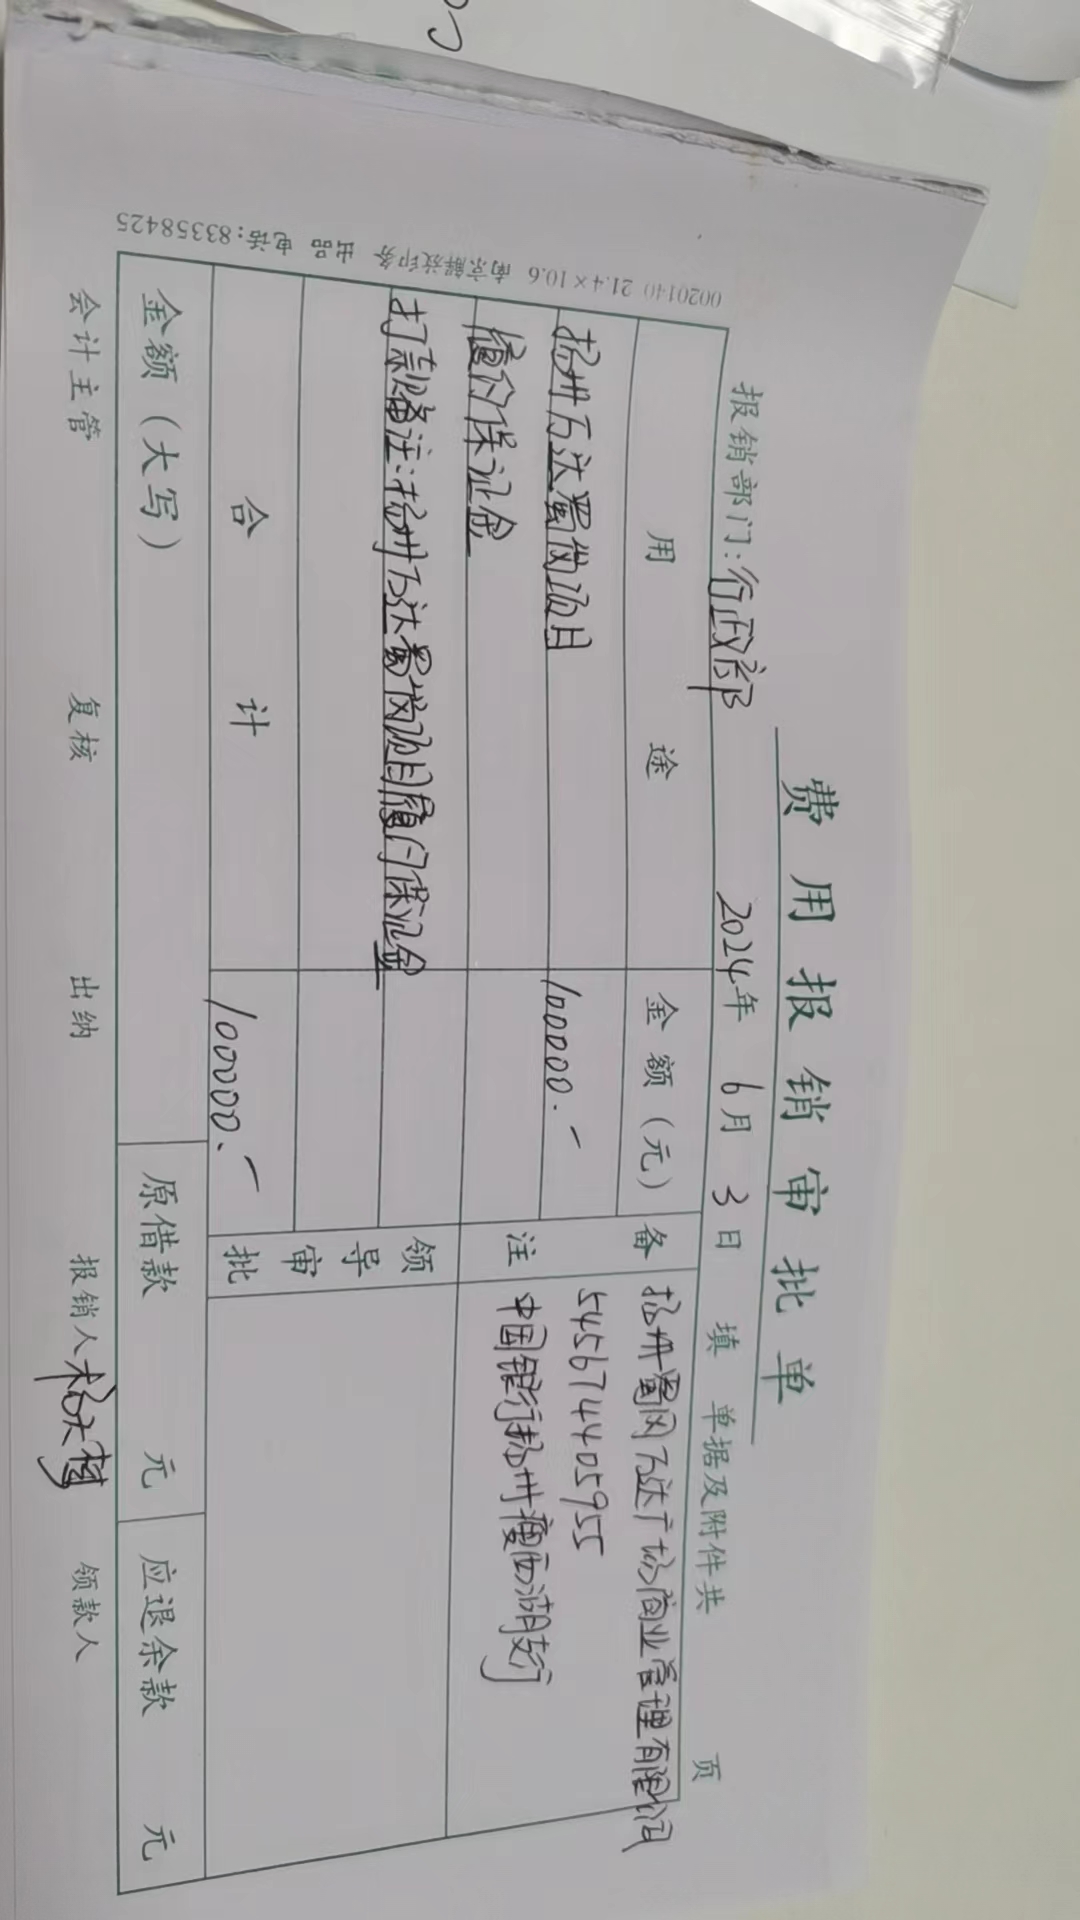 费用报销审批单
报销部门：行政部 2024年 6月 3日 填 单据及附件共 页
用途 金额（元） 备注
扬州万达蜀岗项目 100000.-
履约保证金
打款备注：扬州万达蜀岗项目履约保证金
扬州蜀冈万达广场商业管理有限公司
545674405955
中国银行扬州瘦西湖支行
领导审批
合计 100000.-
金额（大写） 原借款 元 应退余款 元
会计主管 复核 出纳 报销人 领款人
0020140 21.4×10.6 南京解放印务 出品 电话：83358425